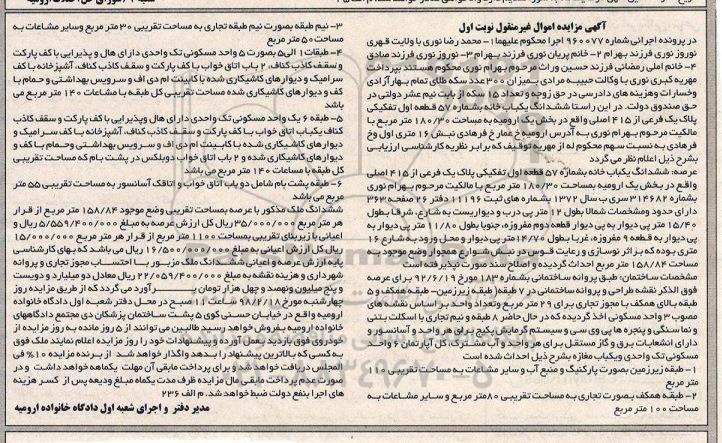 آگهی مزایده اموال غیرمنقول نوبت اول
در پرونده اجرائی شماره 960077 اجرا محکوم علیهما 1- محمد رضا نوری با ولایت قهری
نوروز نوری فرزند بهرام 2- خانم پریان نوری فرزند بهرام 3- نوروز نوری فرزند صادق
4- خانم املی رمضانی فرزند حسین وراث مرحوم بهرام نوری محکوم هستند بپرداخت
مهریه کبری نوری با وکالت حبیبه مرادی بمیزان 300 عدد سکه طلای تمام بهار آزادی
وخسارات وهزینه های دادرسی در حق زوجه و تعداد 15 سکه از بابت نیم عشر دولتی در
حق صندوق دولت. در این راستا ششدانگ یکباب خانه بشماره 57 قطعه اول تفکیکی
پلاک یک فرعی از 415 اصلی واقع در بخش یک ارومیه به مساحت 180/30 متر مربع با
مالکیت مرحوم بهرام نوری به آدرس ارومیه خ عمار خ فرهادی نبش 16 متری اول وخ
فرهادی به نسبت سهم محکوم له از مهریه توقیف که برابر نظریه کارشناسی ارزیابی
بشرح ذیل اعلام نظر می گردد
عرصه: ششدانگ یکباب خانه بشماره 57 قطعه اول تفکیکی پلاک یک فرعی از 415 اصلی
واقع در بخش یک ارومیه بمساحت 180/30 متر مربع با مالکیت مرحوم بهرام نوری
بشماره 314682 سری ب سال 1372 بشماره های ثبت 11196 دفتر 26 صفحه 363
دارای حدود ومشخصات شمالا بطول 12 متر پی درب و دیواریست به شارع، شرقا بطول
15/40 متر پی دیوار به پی دیوار قطعه دوم مفروزه، جنوبا بطول 11/80 متر پی دیوار به
پی دیوار به قطعه 9 مفروزه، غربا بطول 14/70 متر پی دیوار و محل ورود به شارع 16
متری بوده که برابر نوسازی و رعایت قوس در نبش شوارع همجوار وضع موجود به
مساحت 158/84 متر مربع احداث گردیده و اصلاح سند صورت نپذیرفته است
مشخصات ساختمان: طبق پروانه ساختمانی بشماره 1830 مورخ 92/6/19 برای عرصه
فوق الذکر نقشه طراحی و پروانه ساختمانی در 7 طبقه( طبقه زیرزمین- طبقه همکف و 5
طبقه بالای همکف با مجوز تجاری برای 29 متر مربع وتعداد واحد براساس نقشه های
مصوب 3 واحد مسکونی اخذ گردیده که در حال حاضر 8 طبقه و نیم تجاری با اسکلت بتنی
و نما سنگی و پنجره ها پی وی سی و سیستم گرمایش پکیج برای هر واحد و آسانسور و
دارای انشعابات برق و گاز مستقل برای هر واحد و آب مشترک، کل آپارتمان 6 واحد
مسکونی تک واحدی ویکباب مغازه بشرح ذیل احداث شده است
1- طبقه زیرزمین بصورت پارکینگ و منبع آب و سایر مشاعات به مساحت تقریبی 110
متر مربع
2- طبقه همکف بصورت تجاری به مساحت تقریبی 80 متر مربع و سایر مشاعات به
مساحت 100 متر مربع
3- نیم طبقه بصورت نیم طبقه تجاری به مساحت تقریبی 30 متر مربع وسایر مشاعات به
مساحت 50 متر مربع
4- طبقات 1 الی 5 بصورت 5 واحد مسکونی تک واحدی دارای هال و پذیرایی با کف پارکت
و سقف کاذب کناف، 2 باب اتاق خواب با کف پارکت و سقف کاذب کناف، آشپزخانه با کف
سرامیک و دیوارهای کاشیکاری شده با کابینت ام دی اف و سرویس بهداشتی و حمام با
کف و دیوارهای کاشیکاری شده مساحت تقریبی کل طبقه با مشاعات 140 متر مربع می
باشد
5- طبقه 6 یک واحد مسکونی تک واحدی دارای هال وپذیرایی با کف پارکت و سقف کاذب
کناف یکباب اتاق خواب با کف پارکت و سقف کاذب کناف، آشپزخانه با کف سرامیک و
دیوارهای کاشیکاری شده با کابینت ام دی اف و سرویس بهداشتی وحمام با کف و
دیوارهای کاشیکاری شده و 2 باب اتاق خواب دوبلکس در پشت بام که مساحت تقریبی
کل طبقه با مساعات 140 متر مربع می باشد
6- طبقه پشت بام شامل دو باب اتاق خواب و اتاقک آسانسور به مساحت تقریبی 55 متر
مربع می باشد
ششدانگ ملک مذکور با عرصه بمساحت تقریبی وضع موجود 158/84 متر مربع از قرار
هر متر مربع 35/000/000 ریال کل ارزش عرصه به مبلغ 5/559/400/000 ریال و
اعیانی با زیربنای تقریبی بمساحت 1100 متر مربع از قرار هر متر مربع 15/000/000
ریال کل ارزش اعیانی به مبلغ 16/500/000/000 ریال می باشد که بهای کارشناسی
پایه ارزش عرصه و اعیانی ششدانگ ملک مزبور با احتساب مجوز تجاری و پروانه
شهرداری و هزینه نقشه به مبلغ 22/059/400/000 ریال معادل دو میلیارد و دویست
و پنج میلیون ونهصد و چهل هزار تومان برآورد می گردد که از طریق مزایده روز
چهارشنبه مورخ 98/2/18 صبح در محل دفتر شعبه اول دادگاه خانواده
ارومیه واقع در خیابان حسنی کوی 5 پشت ساختمان پزشکان دی مجتمع دادگاههای
خانواده ارومیه بفروش خواهد رسید طالبین می توانند از 5 روز مانده به روز مزایده از
متروی فوق بازدید بعمل آورد و پیشنهادات خود را روز مزایده اعلام نمایند ملک فوق
به کسی که بالاترین پیشنهاد را بدهد واگذار خواهد شد. از برنده مزایده 10% فی
المجلس دریافت خواهد شد و برای پرداخت مابقی آن مهلت یکماهه خواهد داشت و در
صورت عدم پرداخت مابقی مال مزایده ظرف مدت یکماه مبلغ ودیعه پس از کسر هزینه
های اجرا بنفع دولت ضبط خواهد شد. م الف 236
مدیر دفتر و اجرای شعبه اول دادگاه خانواده ارومیه